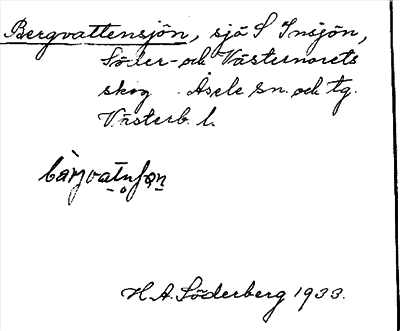 Bergvattensjön, sjö S Insjön,
Söder- och Västernorets
skog. Åsele sn. och tg.
Västerb. l.
H. A. Söderberg 1933.